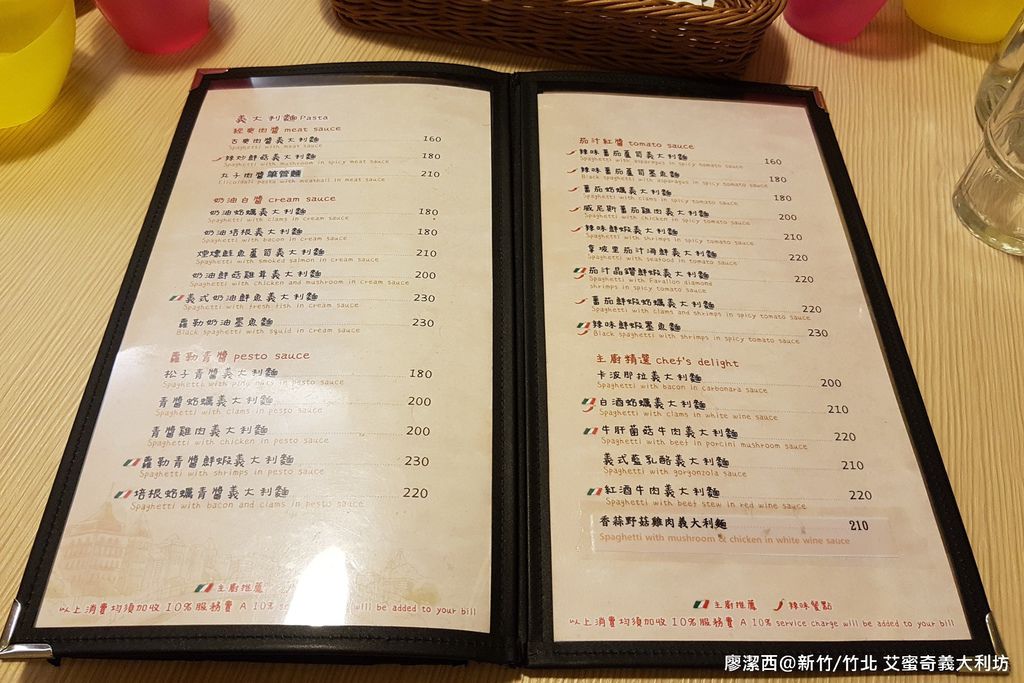 義大利麵 Pasta
經典肉醬 meat sauce
古典肉醬義大利麵 160
Spaghetti with meat sauce
辣炒鮮菇義大利麵 180
Spaghetti with mushroom in spicy meat sauce
丸子肉醬筆管麵 210
Elicoidali pasta with meatball in meat sauce
奶油白醬 cream sauce
奶油蛤蠣義大利麵 180
Spaghetti with clams in cream sauce
奶油培根義大利麵 180
Spaghetti with bacon in cream sauce
煙燻鮭魚蘆筍義大利麵 210
Spaghetti with smoked salmon in cream sauce
奶油鮮菇雞茸義大利麵 200
Spaghetti with chicken and mushroom in cream sauce
義式奶油鮮魚義大利麵 230
Spaghetti with fresh fish in cream sauce
蘿勒奶油墨魚麵 230
Black spaghetti with squid in cream sauce
蘿勒青醬 pesto sauce
松子青醬義大利麵 180
Spaghetti with pine nuts in pesto sauce
青醬蛤蠣義大利麵 200
Spaghetti with clams in pesto sauce
青醬雞肉義大利麵 200
Spaghetti with chicken in pesto sauce
蘿勒青醬鮮蝦義大利麵 230
Spaghetti with shrimps in pesto sauce
培根蛤蠣青醬義大利麵 220
Spaghetti with bacon and clams in pesto sauce
主廚推薦
以上消費均須加收10%服務費 A 10% will be added to your bill
茄汁紅醬 tomato sauce
辣味蕃茄蘆筍義大利麵 160
Spaghetti with asparagus in spicy tomato sauce
辣味蕃茄蘆筍墨魚麵 180
Black spaghetti with asparagus in spicy tomato sauce
蕃茄蛤蠣義大利麵 180
Spaghetti with clams in spicy tomato sauce
威尼斯蕃茄雞肉義大利麵 200
Spaghetti with chicken in spicy tomato sauce
辣味鮮蝦義大利麵 210
Spaghetti with shrimps in spicy tomato sauce
拿坡里茄汁海鮮義大利麵 220
Spaghetti with seafood in tomato sauce
茄汁晶鑽鮮蝦義大利麵 220
Spaghetti with Farallon diamond
shrimps in spicy tomato sauce
蕃茄鮮蝦蛤蠣義大利麵 220
Spaghetti with clams and shrimps in spicy tomato sauce
辣味鮮蝦墨魚麵 230
Black spaghetti with shrimps in spicy tomato sauce
主廚精選 chef's delight
卡波那拉義大利麵 200
Spaghetti with bacon in carbonara sauce
白酒蛤蠣義大利麵 210
Spaghetti with clams in white wine sauce
牛肝菌菇牛肉義大利麵 220
Spaghetti with beef in porcini mushroom sauce
義式藍乳酪義大利麵 210
Spaghetti with gorgonzola sauce
紅酒牛肉義大利麵 220
Spaghetti with beef stew in red wine sauce
香蒜野菇雞肉義大利麵 210
Spaghetti with mushroom & chicken in white wine sauce
主廚推薦 辣味餐點
以上消費均須加收10%服務費 A 10% service charge will be added to your bill
廖潔西@新竹/竹北 艾蜜奇義大利坊